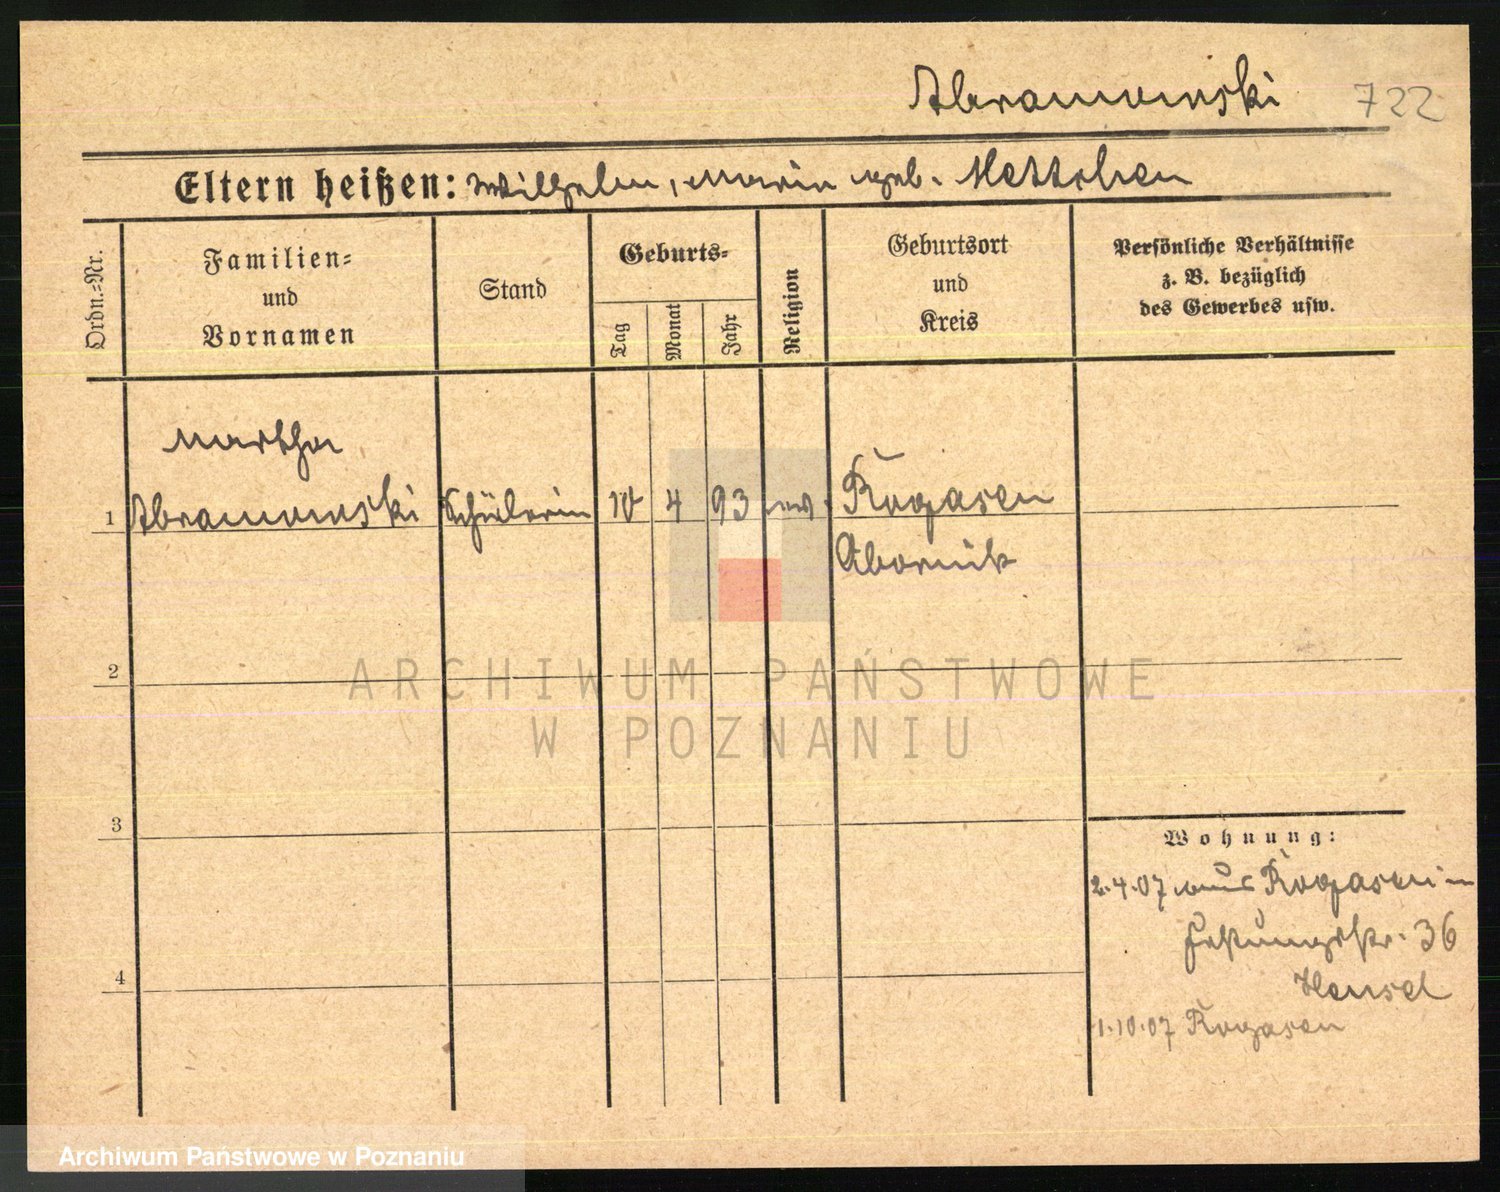 Abramowski 722
Eltern heißen: Wilhelm, Maria geb. Mettchen
Ordn.-Nr.
Familien-
und
Vornamen
Stand
Geburts-
Tag
Monat
Jahr
Religion
Geburtsort
und
Kreis
Persönliche Verhältnisse
z. B. bezüglich
des Gewerbes usw.
Martha
1 Abramowski Schülerin 10 4 93 ev. Rogasen
Obornik
2
ARCHIWUM PAŃSTWOWE
W POZNANIU
3
Wohnung:
2.4.07 aus Rogasen in
Festungsstr. 36
Hensel
4
1.10.07 Rogasen
Archiwum Państwowe w Poznaniu